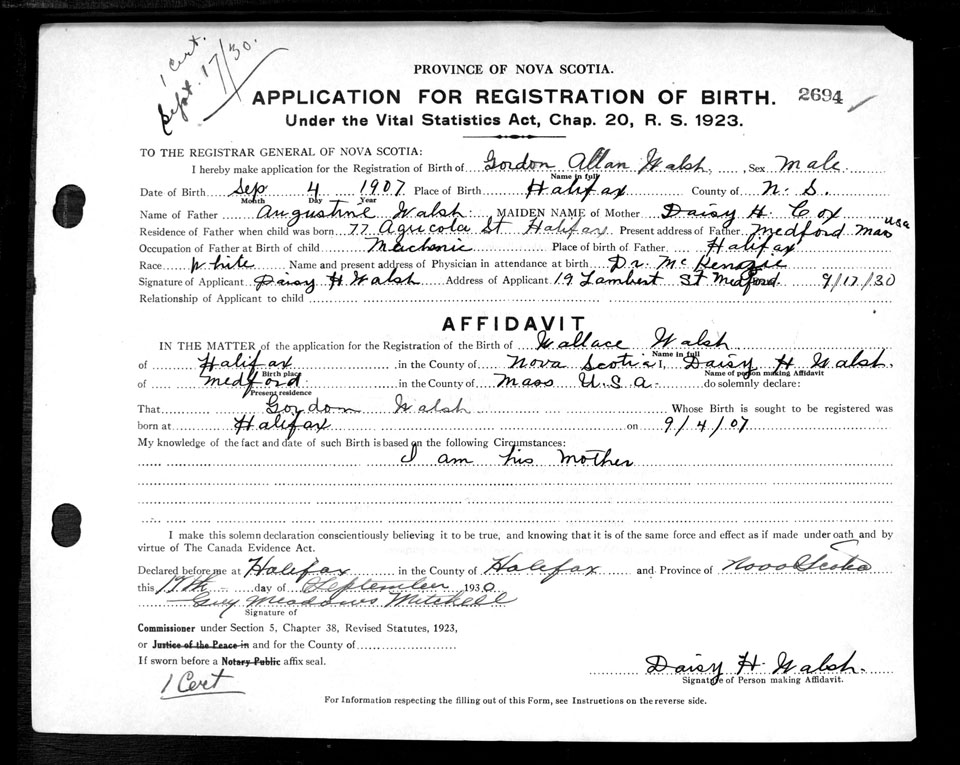 1 Cert.
Sept. 17/30.
PROVINCE OF NOVA SCOTIA.
APPLICATION FOR REGISTRATION OF BIRTH. 2694
Under the Vital Statistics Act, Chap. 20, R. S. 1923.
TO THE REGISTRAR GENERAL OF NOVA SCOTIA:
I hereby make application for the Registration of Birth of Gordon Allan Walsh, Sex Male.
Name in full
Date of Birth Sep 4 1907 Place of Birth Halifax County of N. S.
Month Day Year
Name of Father Augustine Walsh. MAIDEN NAME of Mother Daisy H. Cox
Residence of Father when child was born 77 Agricola St Halifax Present address of Father Medford Mass USA
Occupation of Father at Birth of child Mechanic Place of birth of Father Halifax
Race White Name and present address of Physician in attendance at birth Dr. McKenzie
Signature of Applicant Daisy H Walsh Address of Applicant 19 Lambert St Medford. 9/17/30
Relationship of Applicant to child
AFFIDAVIT
IN THE MATTER of the application for the Registration of the Birth of Wallace Walsh
Name in full
of Halifax in the County of Nova Scotia I, Daisy H Walsh.
Birth place Name of person making Affidavit
of Medford in the County of Mass U.S.A. do solemnly declare:
Present residence
That Gordon Walsh Whose Birth is sought to be registered was
born at Halifax on 9/4/07
My knowledge of the fact and date of such Birth is based on the following Circumstances:
I am his Mother
I make this solemn declaration conscientiously believing it to be true, and knowing that it is of the same force and effect as if made under oath and by
virtue of The Canada Evidence Act.
Declared before me at Halifax in the County of Halifax and Province of Nova Scotia
this 17th day of September 1930
Guy Meadows Mitchell
Signature of
Commissioner under Section 5, Chapter 38, Revised Statutes, 1923,
or Justice of the Peace in and for the County of
If sworn before a Notary Public affix seal.
1 Cert
Daisy H. Walsh.
Signature of Person making Affidavit.
For Information respecting the filling out of this Form, see Instructions on the reverse side.